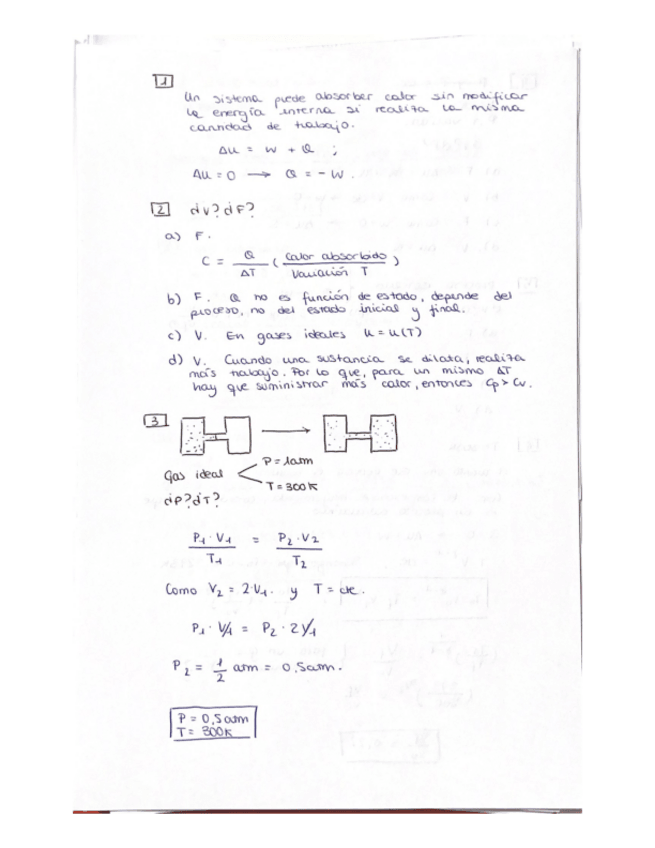 1
Un sistema puede absorber calor sin modificar
la energía interna si realiza la misma
cantidad de trabajo.
Δu = W + Q ;
Δu = 0 → Q = - W.
2 ¿V? ¿F?
a) F.
C = Q / ΔT ( Calor absorbido / Variación T )
b) F. Q no es función de estado, depende del
proceso, no del estado inicial y final.
c) V. En gases ideales u = u(T)
d) V. Cuando una sustancia se dilata, realiza
más trabajo. Por lo que, para un mismo ΔT
hay que suministrar más calor, entonces Cp > Cv.
3
P = 1atm
Gas ideal
T = 300K
¿P? ¿T?
P1 · V1 / T1 = P2 · V2 / T2
Como V2 = 2·V1. y T = cte.
P1 · V1 = P2 · 2V1
P2 = 1/2 atm = 0,5atm.
P = 0,5atm
T = 300K